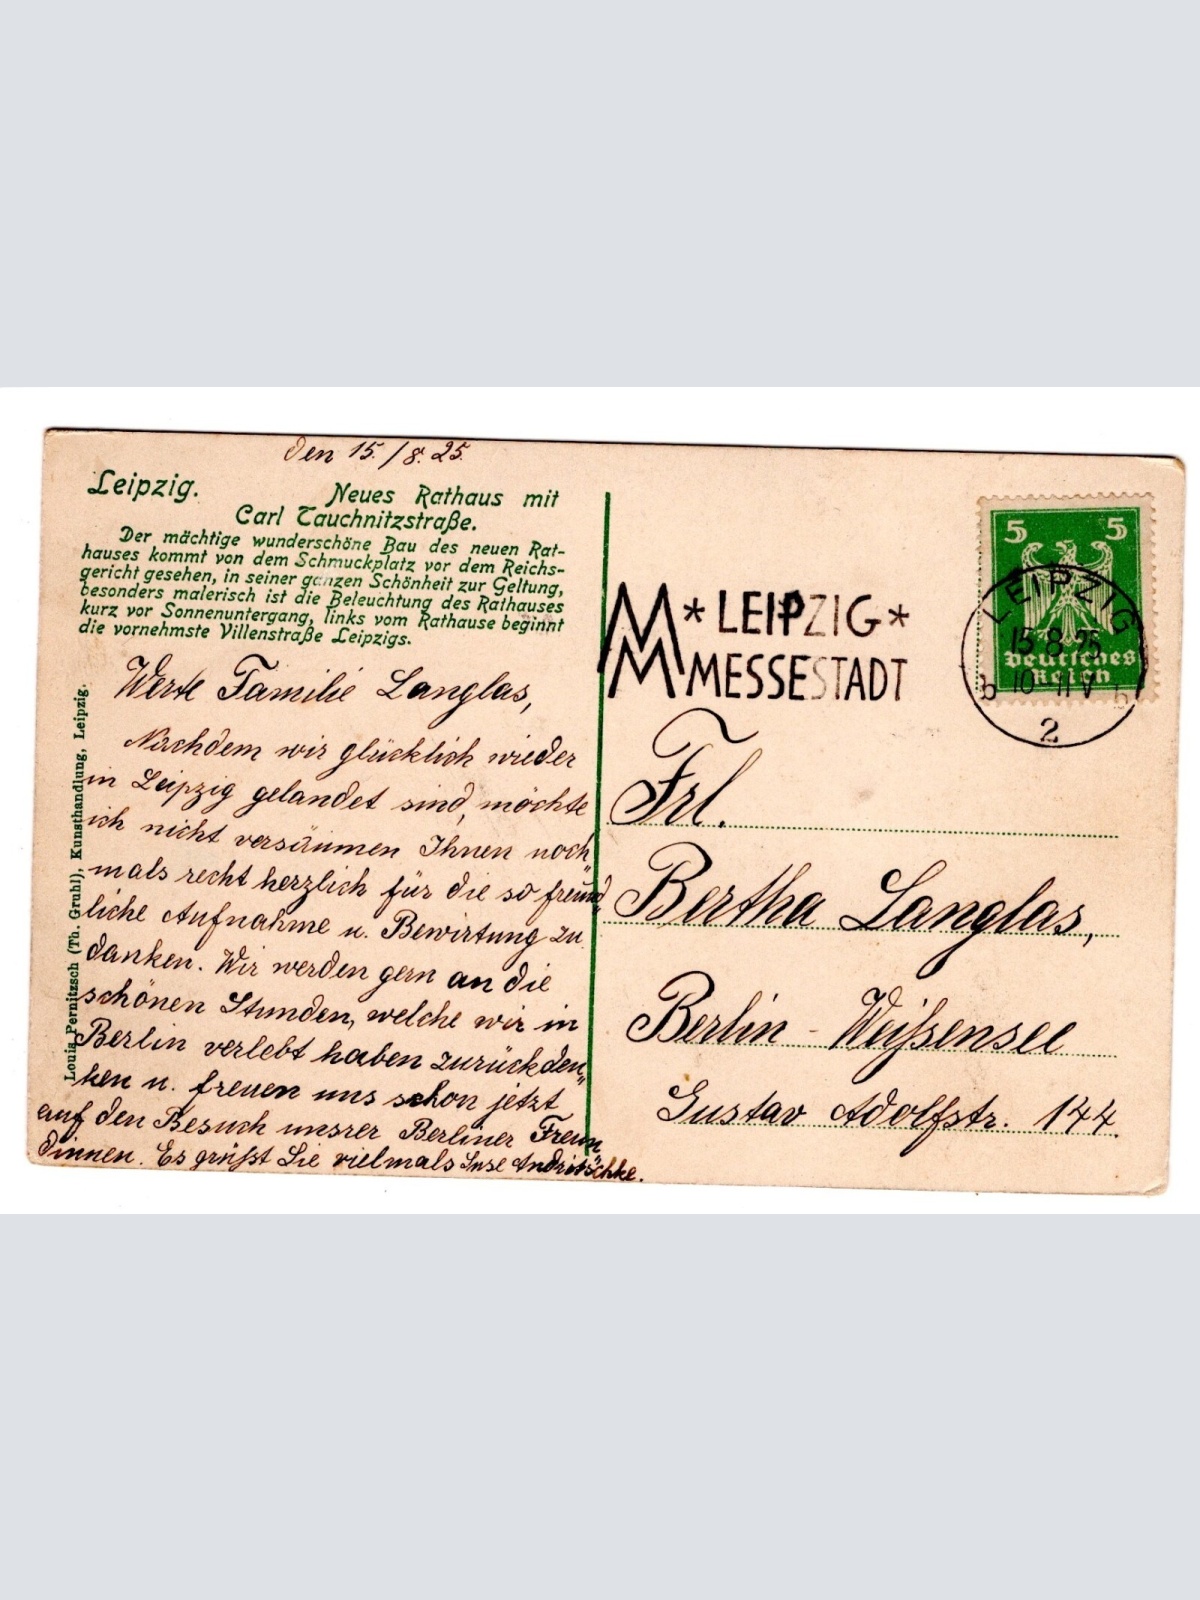 den 15./8. 25.
Leipzig. Neues Rathaus mit
Carl Tauchnitzstraße.
Der mächtige wunderschöne Bau des neuen Rat-
hauses kommt von dem Schmuckplatz vor dem Reichs-
gericht gesehen, in seiner ganzen Schönheit zur Geltung,
besonders malerisch ist die Beleuchtung des Rathauses
kurz vor Sonnenuntergang, links vom Rathause beginnt
die vornehmste Villenstraße Leipzigs.
Werte Familie Langlas,
Nachdem wir glücklich wieder
in Leipzig gelandet sind, möchte
ich nicht versäumen Ihnen noch
mals recht herzlich für die so freund
liche Aufnahme u. Bewirtung zu
danken. Wir werden gern an die
schönen Stunden, welche wir in
Berlin verlebt haben zurückden„
ken u. freuen uns schon jetzt
auf den Besuch unsrer Berliner Freun„
dinnen. Es grüßt Sie vielmals Andritschke.
Louis Pernitzsch (Th. Gruhl), Kunsthandlung, Leipzig.
MM * LEIPZIG *
MESSESTADT
5 5
Deutsches
Reich
LEIPZIG
15.8.25
b 10-11 V b
2
Frl.
Bertha Langlas,
Berlin - Weißensee
Gustav Adolfstr. 144.